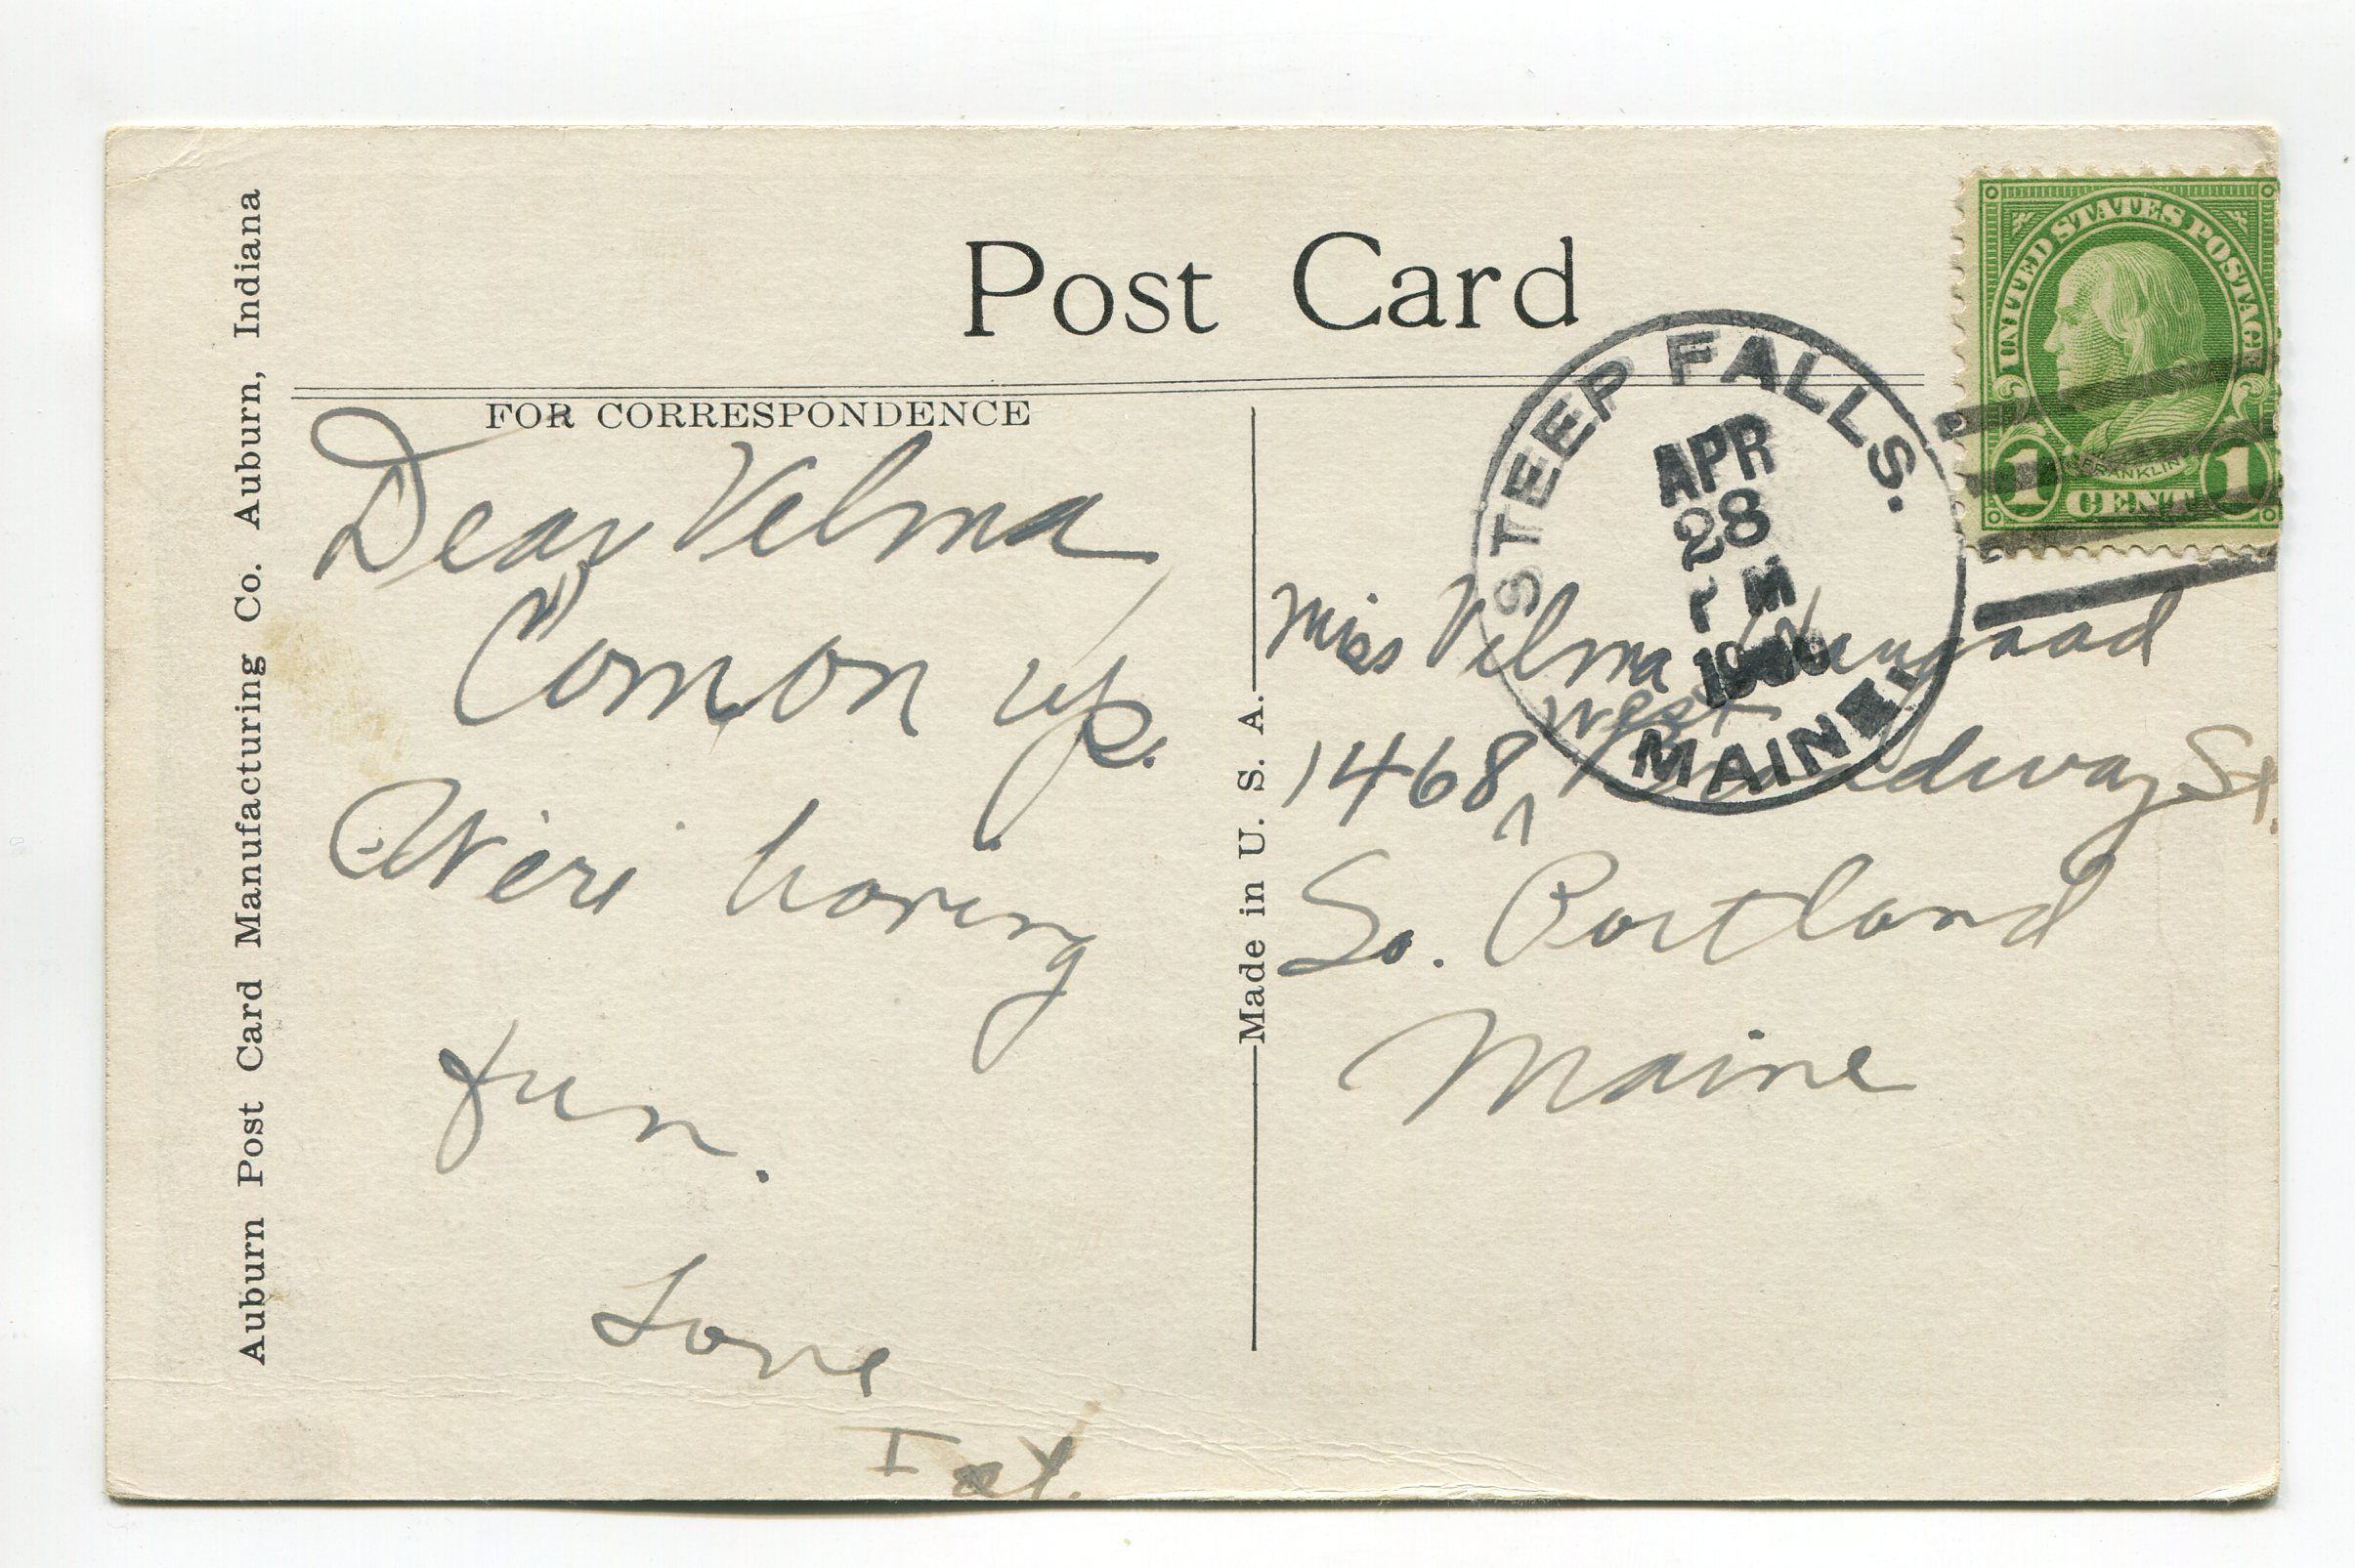 Auburn Post Card Manufacturing Co. Auburn, Indiana
Post Card
FOR CORRESPONDENCE
Dear Velma,
Com on up.
We're having
fun.
Love
Made in U. S. A.
STEEP FALLS.
APR
28
M
MAINE
UNITED STATES POSTAGE
FRANKLIN
1 CENT 1
Miss Velma
West
1468 ^ Broadway St.
So. Portland
Maine